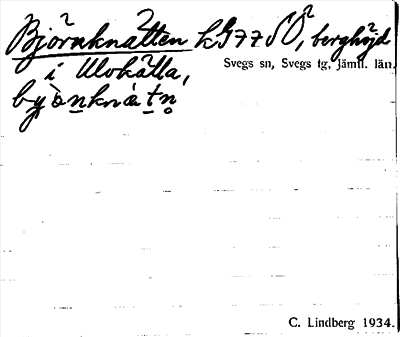 Björnknätten kG77SÖ, berghöjd
i Ulvkälla,
Svegs sn, Svegs tg, Jämtl. län.
C. Lindberg 1934.